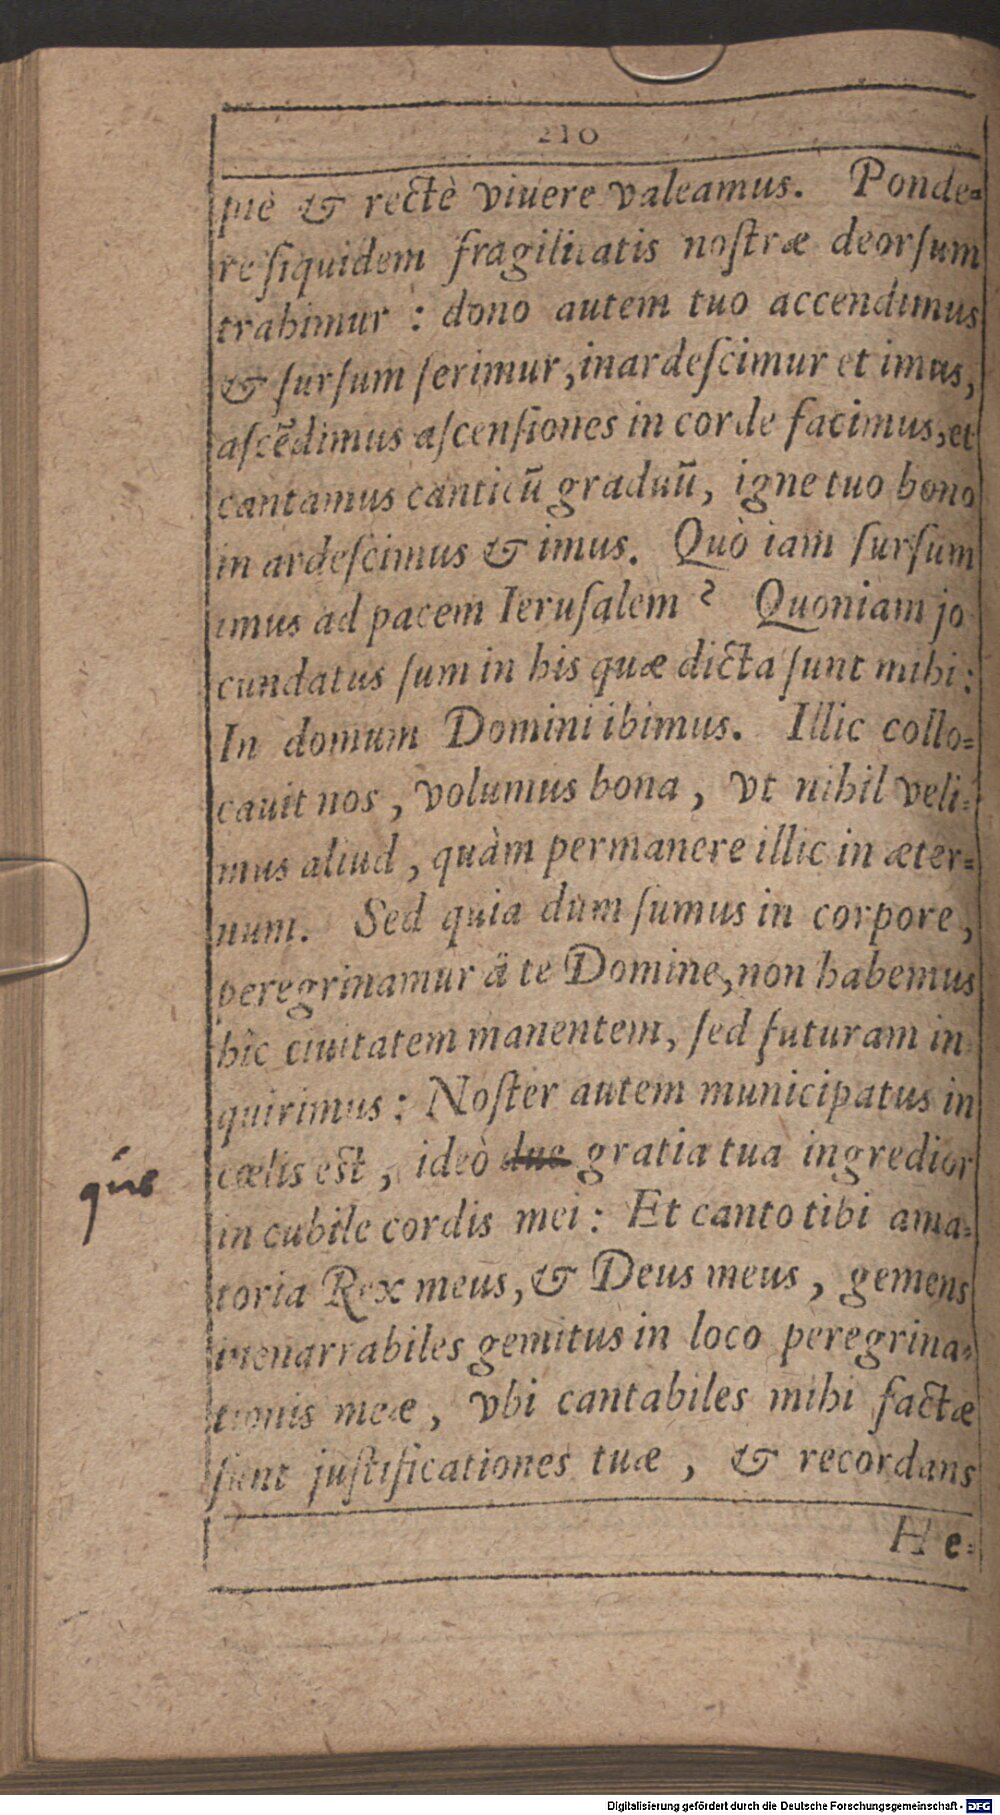 210
piè & rectè viuere valeamus. Ponde=
re siquidem fragilitatis nostræ deorsum
trahimur : dono autem tuo accendimus
& sursum ferimur, inardescimur et imus,
ascēdimus ascensiones in corde facimus, et
cantamus canticū graduū, igne tuo bono
in ardescimus & imus. Quò iam sursum
imus ad pacem Ierusalem ? Quoniam jo
cundatus sum in his quæ dicta sunt mihi :
In domum Domini ibimus. Illic collo=
cauit nos , volumus bona , vt nihil veli=
mus aliud , quàm permanere illic in æter=
num. Sed quia dum sumus in corpore ,
peregrinamur â te Domine, non habemus
hîc ciuitatem manentem, sed futuram in
quirimus : Noster autem municipatus in
cælis est , ideò due gratia tua ingredior
que
in cubile cordis mei : Et canto tibi ama=
toria Rex meus, & Deus meus , gemens
inenarrabiles gemitus in loco peregrina=
tionis meæ , vbi cantabiles mihi factæ
sunt justificationes tuæ , & recordans
He=
Digitalisierung gefördert durch die Deutsche Forschungsgemeinschaft - DFG